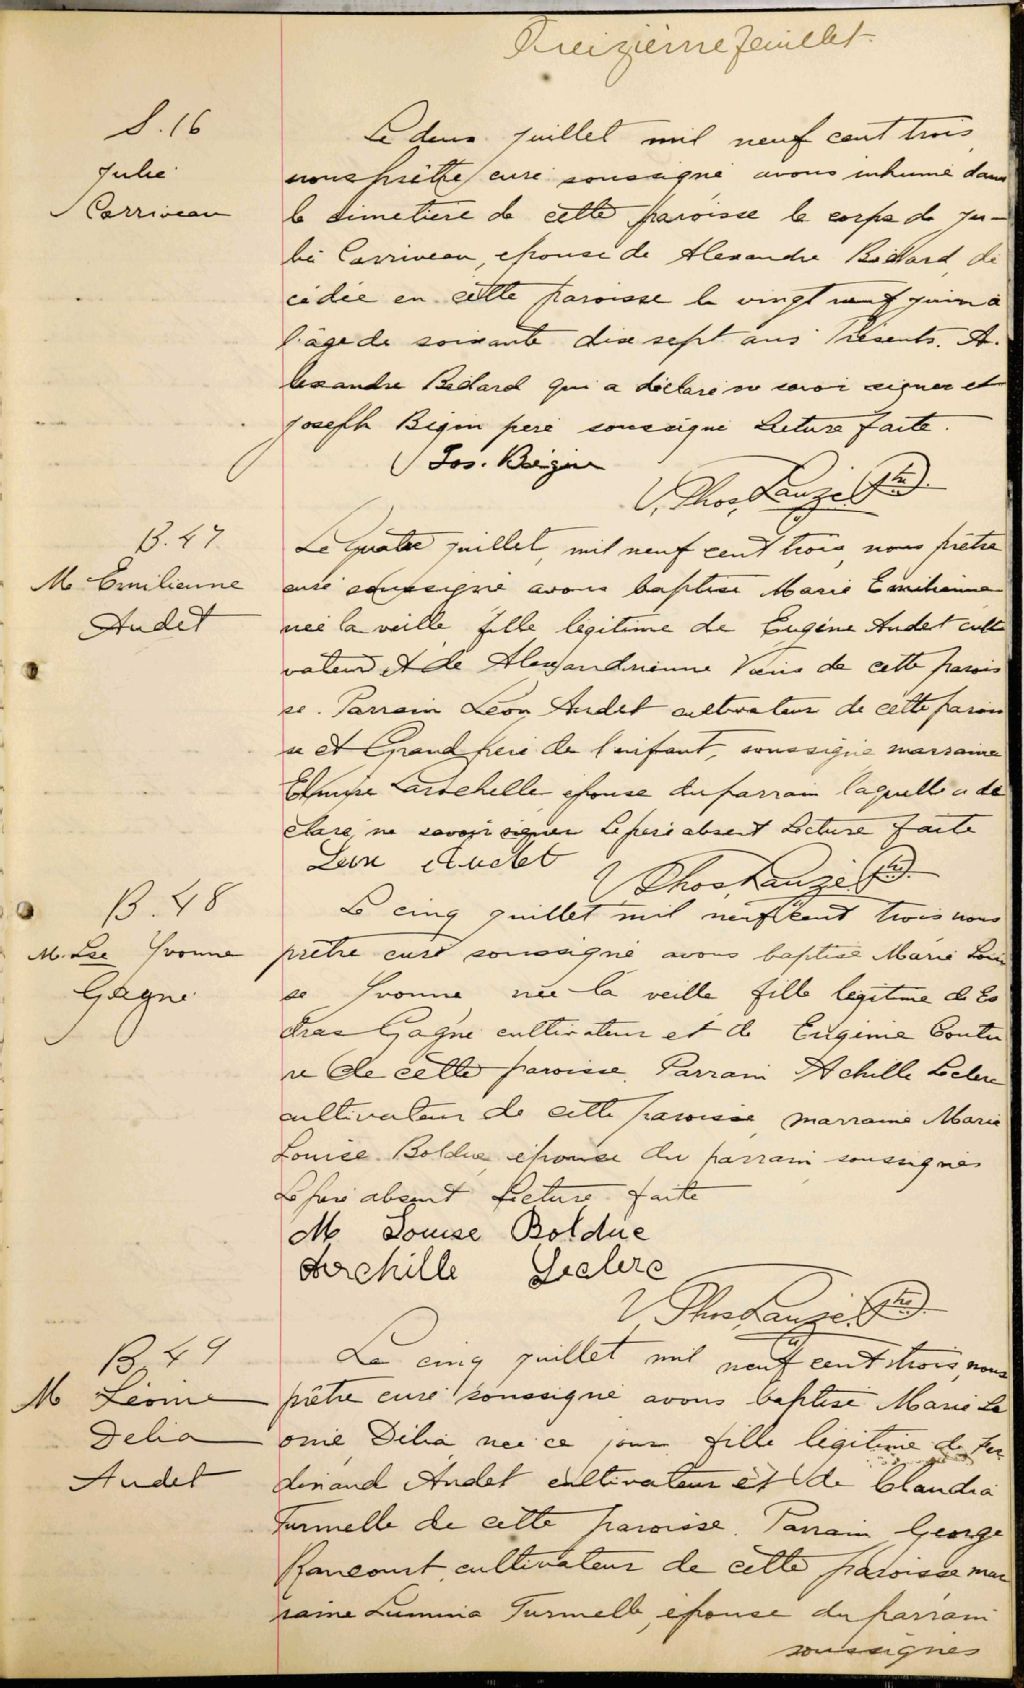 Treizième feuillet
S. 16
Julie
Carriveau
Le deux juillet mil neuf cent trois,
nous prêtre curé soussigné avons inhumé dans
le cimetière de cette paroisse le corps de Ju-
lie Carriveau, épouse de Alexandre Bédard, dé
cédée en cette paroisse le vingt neuf juin à
l'âge de soixante dix sept ans Présents. A.
lexandre Bédard qui a déclaré ne savoir signer et
Joseph Bégin père soussigné Lecture faite.
Jos. Bégin
V. Thos. Lauzé Ptre.
B. 47
M Emilienne
Audet
Le Quatre juillet, mil neuf cent trois, nous prêtre
curé soussigné avons baptisé Marie Emilienne
née la veille fille légitime de Eugène Audet culti
vateur et de Alexandrienne de cette parois
se. Parrain Léon Audet cultivateur de cette parois
se et Grand père de l'enfant, soussigné, marraine
Elmire Larochelle, épouse du parrain laquelle a dé
claré ne savoir signer le père absent Lecture faite
Leon Audet
V. Thos. Lauzé Ptre.
B. 48
M. Lse Yvonne
Gagné
Le cinq juillet mil neuf cent trois nous
prêtre curé soussigné avons baptisé Marie Loui
se Yvonne née la veille fille légitime de Es
dras Gagné cultivateur et de Eugénie Coutu
re de cette paroisse. Parrain Achille Leclerc
cultivateur de cette paroisse, marraine Marie
Louise Bolduc, épouse du parrain soussignés
Le père absent Lecture faite
M Louise Bolduc
Archille Leclerc
V. Thos. Lauzé Ptre.
B. 49
M Léonie
Delia
Audet
Le cinq juillet mil neuf cent trois, nous
prêtre curé soussigné avons baptisé Marie Lé
onie, Délia, née ce jour fille légitime de Fer
dinand Audet cultivateur et de Claudia
Turmelle de cette paroisse. Parrain George
Rancourt, cultivateur de cette paroisse, mar
raine Lumina Turmelle, épouse du parrain
soussignés